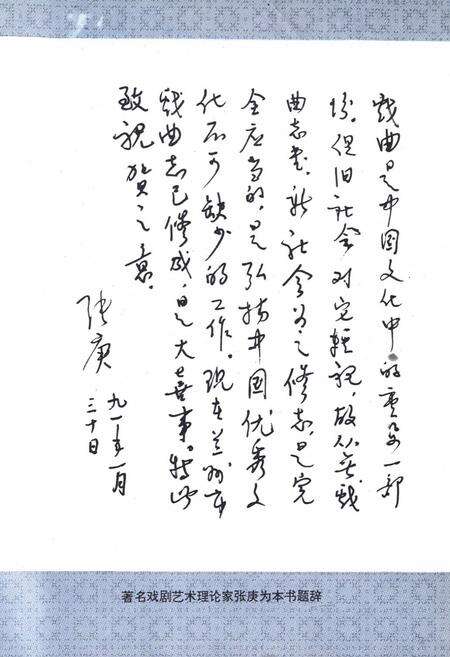 戏曲是中国文化中的重要一部
份。但旧社会对它轻视，故从无戏
曲志书。新社会为之修志，是完
全应当的，是弘扬中国优秀文
化不可缺少的工作。现在兰州市
戏曲志已修成，是大喜事。特此
致祝贺之意。
张庚
九一年一月
三十日
著名戏剧艺术理论家张庚为本书题辞